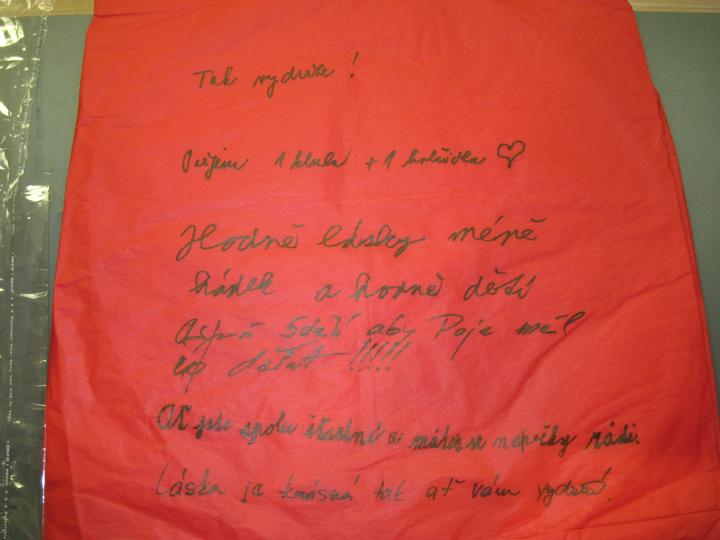 Tak vydržte!
Přejem 1 kluka + 1 holčičku ♡
Hodně lásky méně
hádek a hodně dětí
Aspň 5 dětí aby Paja měl
co dělat !!!!!
Ať jste spolu šťastní a máte se navždy rádi.
Láska je krásná tak ať vám vydrží.